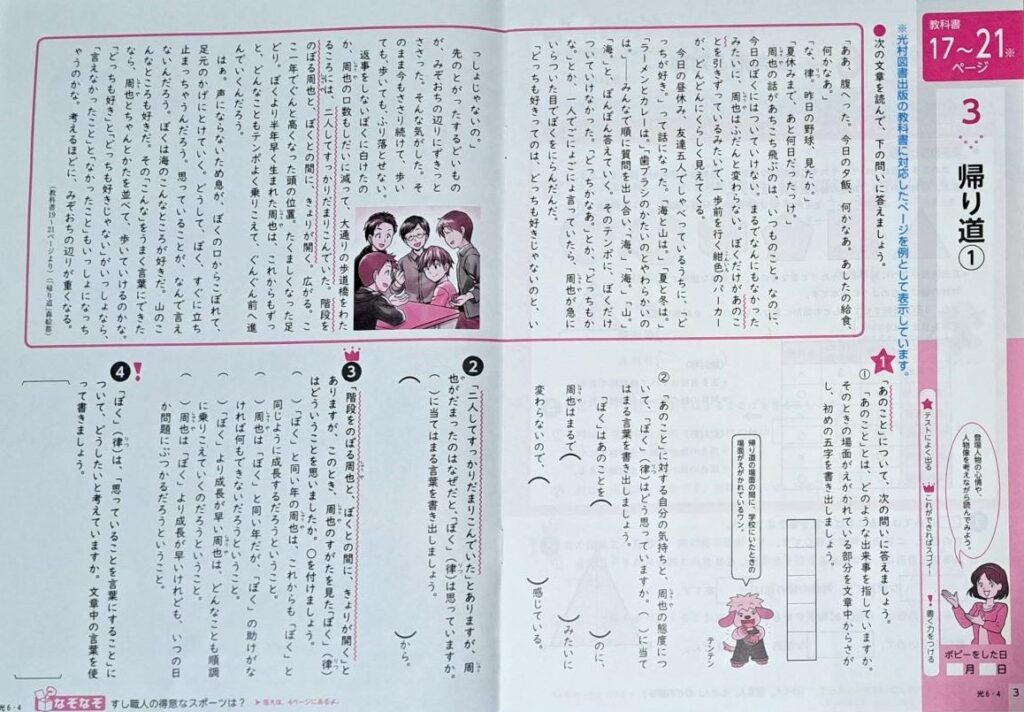 教科書
17〜21※
ページ
3
帰り道①
※光村図書出版の教科書に対応したページを例として表示しています。
● 次の文章を読んで、下の問いに答えましょう。
「ああ、腹へった。今日の夕飯、何かなあ。あしたの給食、
何かなあ。」
「な、律。昨日の野球、見たか。」
「夏休みまで、あと何日だったっけ。」
周也の話があちこち飛ぶのは、いつものこと。なのに、
今日のぼくにはついていけない。まるでなんにもなかった
みたいに、周也はふだんと変わらない。ぼくだけがあのこ
とを引きずっているみたいで、一歩前を行く紺色のパーカー
が、どんどんにくらしく見えてくる。
今日の昼休み、友達五人でしゃべっているうちに、「ど
っちが好き。」って話になった。「海と山は。」「夏と冬は。」
「ラーメンとカレーは。」「歯ブラシのかたいのとやわらかいの
は。」――みんなで順に質問を出し合い、「海。」「海。」「山。」
「海。」と、ぽんぽん答えていく。そのテンポに、ぼくだけ
ついていけなかった。「どっちかなあ。」とか、「どっちもか
な。」とか、一人でごにょごにょ言っていたら、周也が急に
いらついた目でぼくをにらんだんだ。
「どっちも好きってのは、どっちも好きじゃないのと、い
っしょじゃないの。」
先のとがったするどいもの
が、みぞおちの辺りにずきっと
ささった。そんな気がした。そ
のまま今もささり続けて、歩い
ても、歩いても、ふり落とせない。
返事をしないぼくに白けたの
か、周也の口数もしだいに減って、大通りの歩道橋をわた
るころには、二人してすっかりだまりこんでいた。階段を
のぼる周也と、ぼくとの間に、きょりが開く。広がる。こ
こ一年でぐんと高くなった頭の位置。たくましくなった足
どり。ぼくより半年早く生まれた周也は、これからもずっ
と、どんなこともテンポよく乗りこえて、ぐんぐん前へ進
んでいくんだろう。
はぁ。声にならないため息が、ぼくの口からこぼれて、
足元のかげにとけていく。どうして、ぼく、すぐに立ち
止まっちゃうんだろう。思っていることが、なんで言え
ないんだろう。ぼくは海のこんなところが好きだ。山のこ
んなところも好きだ。その「こんな」をうまく言葉にできた
なら、周也とちゃんとかたを並べて、歩いていけるのかな。
「どっちも好き」と「どっちも好きじゃない」がいっしょなら、
「言えなかったこと」と「なかったこと」もいっしょになっち
ゃうのかな。考えるほどに、みぞおちの辺りが重くなる。
(教科書19〜21ページより)(「帰り道」森絵都)
1 「あのこと」について、次の問いに答えましょう。
① 「あのこと」とは、どのような出来事を指していますか。
そのときの場面がえがかれている部分を文章中からさが
し、初めの五字を書き出しましょう。
帰り道の場面の間に、学校にいたときの
場面がえがかれているワン。
テンテン
② 「あのこと」に対する自分の気持ちと、周也の態度につ
いて、「ぼく」(律)はどう思っていますか。( )に当て
はまる言葉を書き出しましょう。
「ぼく」はあのことを( )のに、
周也はまるで( )みたいに
変わらないので、( )感じている。
2 「二人してすっかりだまりこんでいた」とありますが、周
也がだまったのはなぜだと、「ぼく」(律)は思っていますか。
( )に当てはまる言葉を書き出しましょう。
( )から。
3 「階段をのぼる周也と、ぼくとの間に、きょりが開く」と
ありますが、このとき、周也のすがたを見た「ぼく」(律)
はどういうことを思いましたか。○を付けましょう。
( )「ぼく」と同い年の周也は、これからも「ぼく」と
同じように成長するだろうということ。
( )周也は「ぼく」と同い年だが、「ぼく」の助けがな
ければ何もできないだろうということ。
( )「ぼく」より成長が早い周也は、どんなことも順調
に乗りこえていくのだろうということ。
( )周也は「ぼく」より成長が早いけれども、いつの日
か問題にぶつかるだろうということ。
4 「ぼく」(律)は、「思っていることを言葉にすること」に
ついて、どうしたいと考えていますか。文章中の言葉を使
って書きましょう。
登場人物の心情や、
人物像を考えながら読んでみよう。
テストによく出る
これができればスゴイ!
! 書く力をつける
ポピーをした日
月 日
光6・4 3
光6・4
なぞなぞ すし職人の得意なスポーツは? ▶答えは、4ページにあるよ。